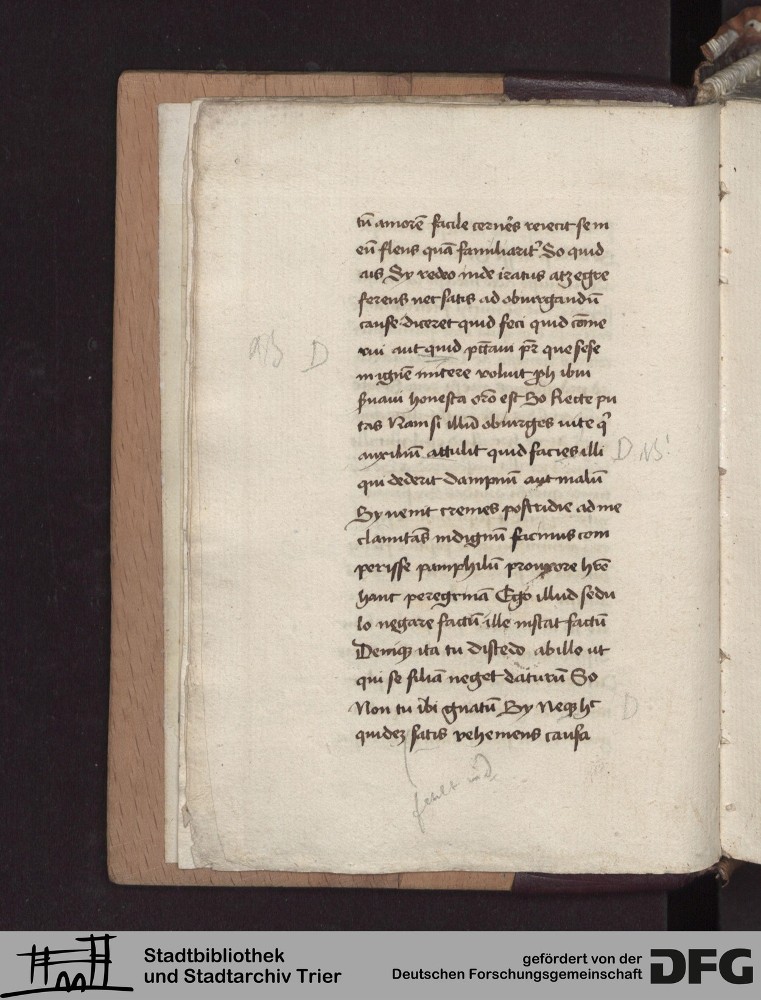 tū amorē facile cernēs reiecit se in
eū flens quā familiarit᾽ So quid
ais Sy redeo inde iratus atq; egre
ferens nec satis ad obiurgandū
cause diceret quid feci quid cōme
rui aut quid pctaui pr̄ que sese
in ignē mittere voluit ꝓhibui
seruaui honesta orō est So Recte pu
tas Nam si illū obiurges vite q̄
auxiliū attulit quid facies illi
qui dederit dampnū aut malū
Sy venit cremes postridie ad me
clamitās indignū facinus com
perisse pamphilū pro uxore hr̄e
hanc peregrinā Ego illud sedu
lo negare factū ille instat factū
Deniq; ita tū discedo ab illo ut
qui se filiā neget daturū So
Non tu ibi gnatū Sy Neq; hec
quidez satis vehemens causa
D
D NB!
D
fehlt in D
Stadtbibliothek
und Stadtarchiv Trier
gefördert von der
Deutschen Forschungsgemeinschaft
DFG